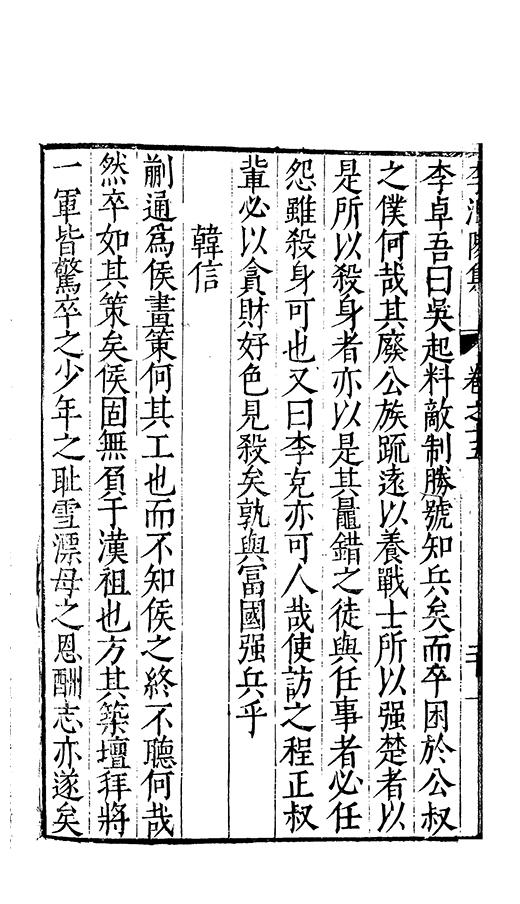 李卓吾曰吳起料敵制勝號知兵矣而卒困於公叔
之僕何哉其廢公族疏遠以養戰士所以强楚者以
是所以殺身者亦以是其鼂錯之徒與任事者必任
怨雖殺身可也又曰李克亦可人哉使訪之程正叔
輩必以貪財好色見殺矣孰與富國强兵乎
韓信
蒯通為侯畫策何其工也而不知侯之終不聽何哉
然卒如其策矣侯固無負于漢祖也方其築壇拜將
一軍皆驚卒之少年之耻雪漂母之恩酬志亦遂矣